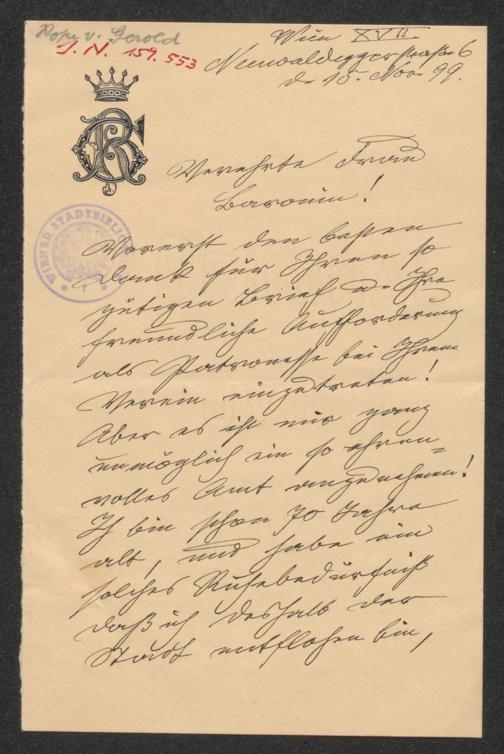 Rosa v. Gerold
J. N. 159.553
Wien XVII
Neuwaldeggerstraße 6
d. 15. Nov. 99.
WIENER STADTBIBLIOTHEK
Verehrte Frau
Baronin!
Vorerst den besten
Dank für Ihren so
gütigen Brief u. Ihre
freundliche Aufforderung
als Patronesse bei Ihrem
Verein einzutreten!
Aber es ist mir ganz
unmöglich ein so ehren-
volles Amt anzunehmen!
Ich bin schon 70 Jahre
alt, und habe ein
solches Ruhebedürfniß
daß ich deshalb der
Stadt entflohen bin,